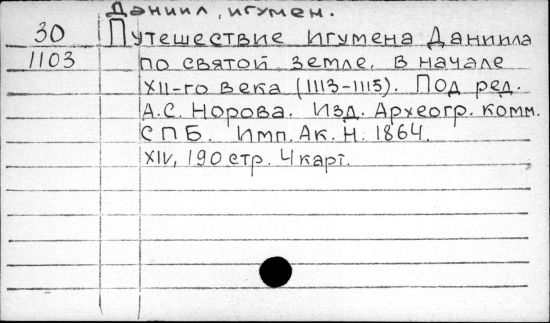 Даниил, игумен.
30 Путешествие игумена Даниила
1103 по святой земле, в начале
XII-го века (1113-1115). Под ред.
А.С. Норова. Изд. Археогр. комм.
СПБ. Имп. Ак. Н. 1864.
XIV, 190 стр. 4 карт.